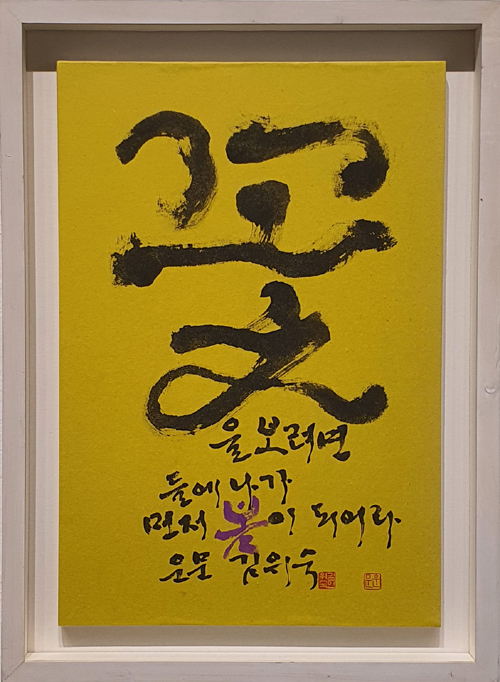 꽃
을 보려면
들에 나가
먼저 봄이 되어라
운문 김위숙